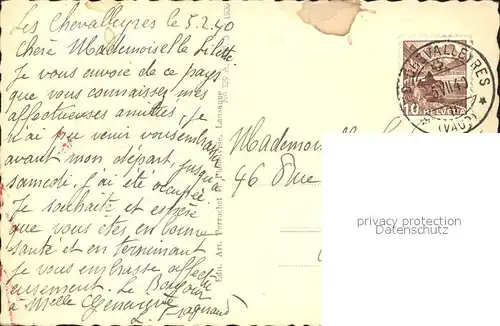 Les Chevalleyres le 5.2.40
Chère Mademoiselle
Je vous envoie de ce pays
que vous connaissez mes
affectueuses amitiés, je
n'ai pu venir vous embrasser
avant mon départ, jusqu'à
samedi, j'ai été occupée.
Je souhaite et espère
que vous êtes en bonne
santé et en terminant
je vous embrasse affectu
eusement. Le Bonjour
à Melle
Edit. Art. Perrochet & Lausanne
Mademoiselle
46 Rue
CHEVALLEYRES
(VAUD)
10
HELVETIA
privacy protection
Datenschutz